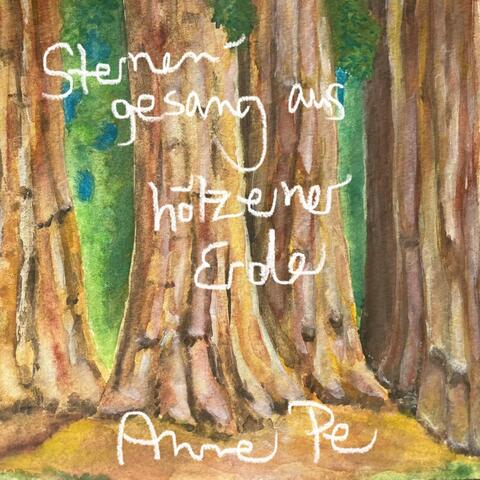 Sternen-
gesang aus
hölzener
Erde
Anne Pe